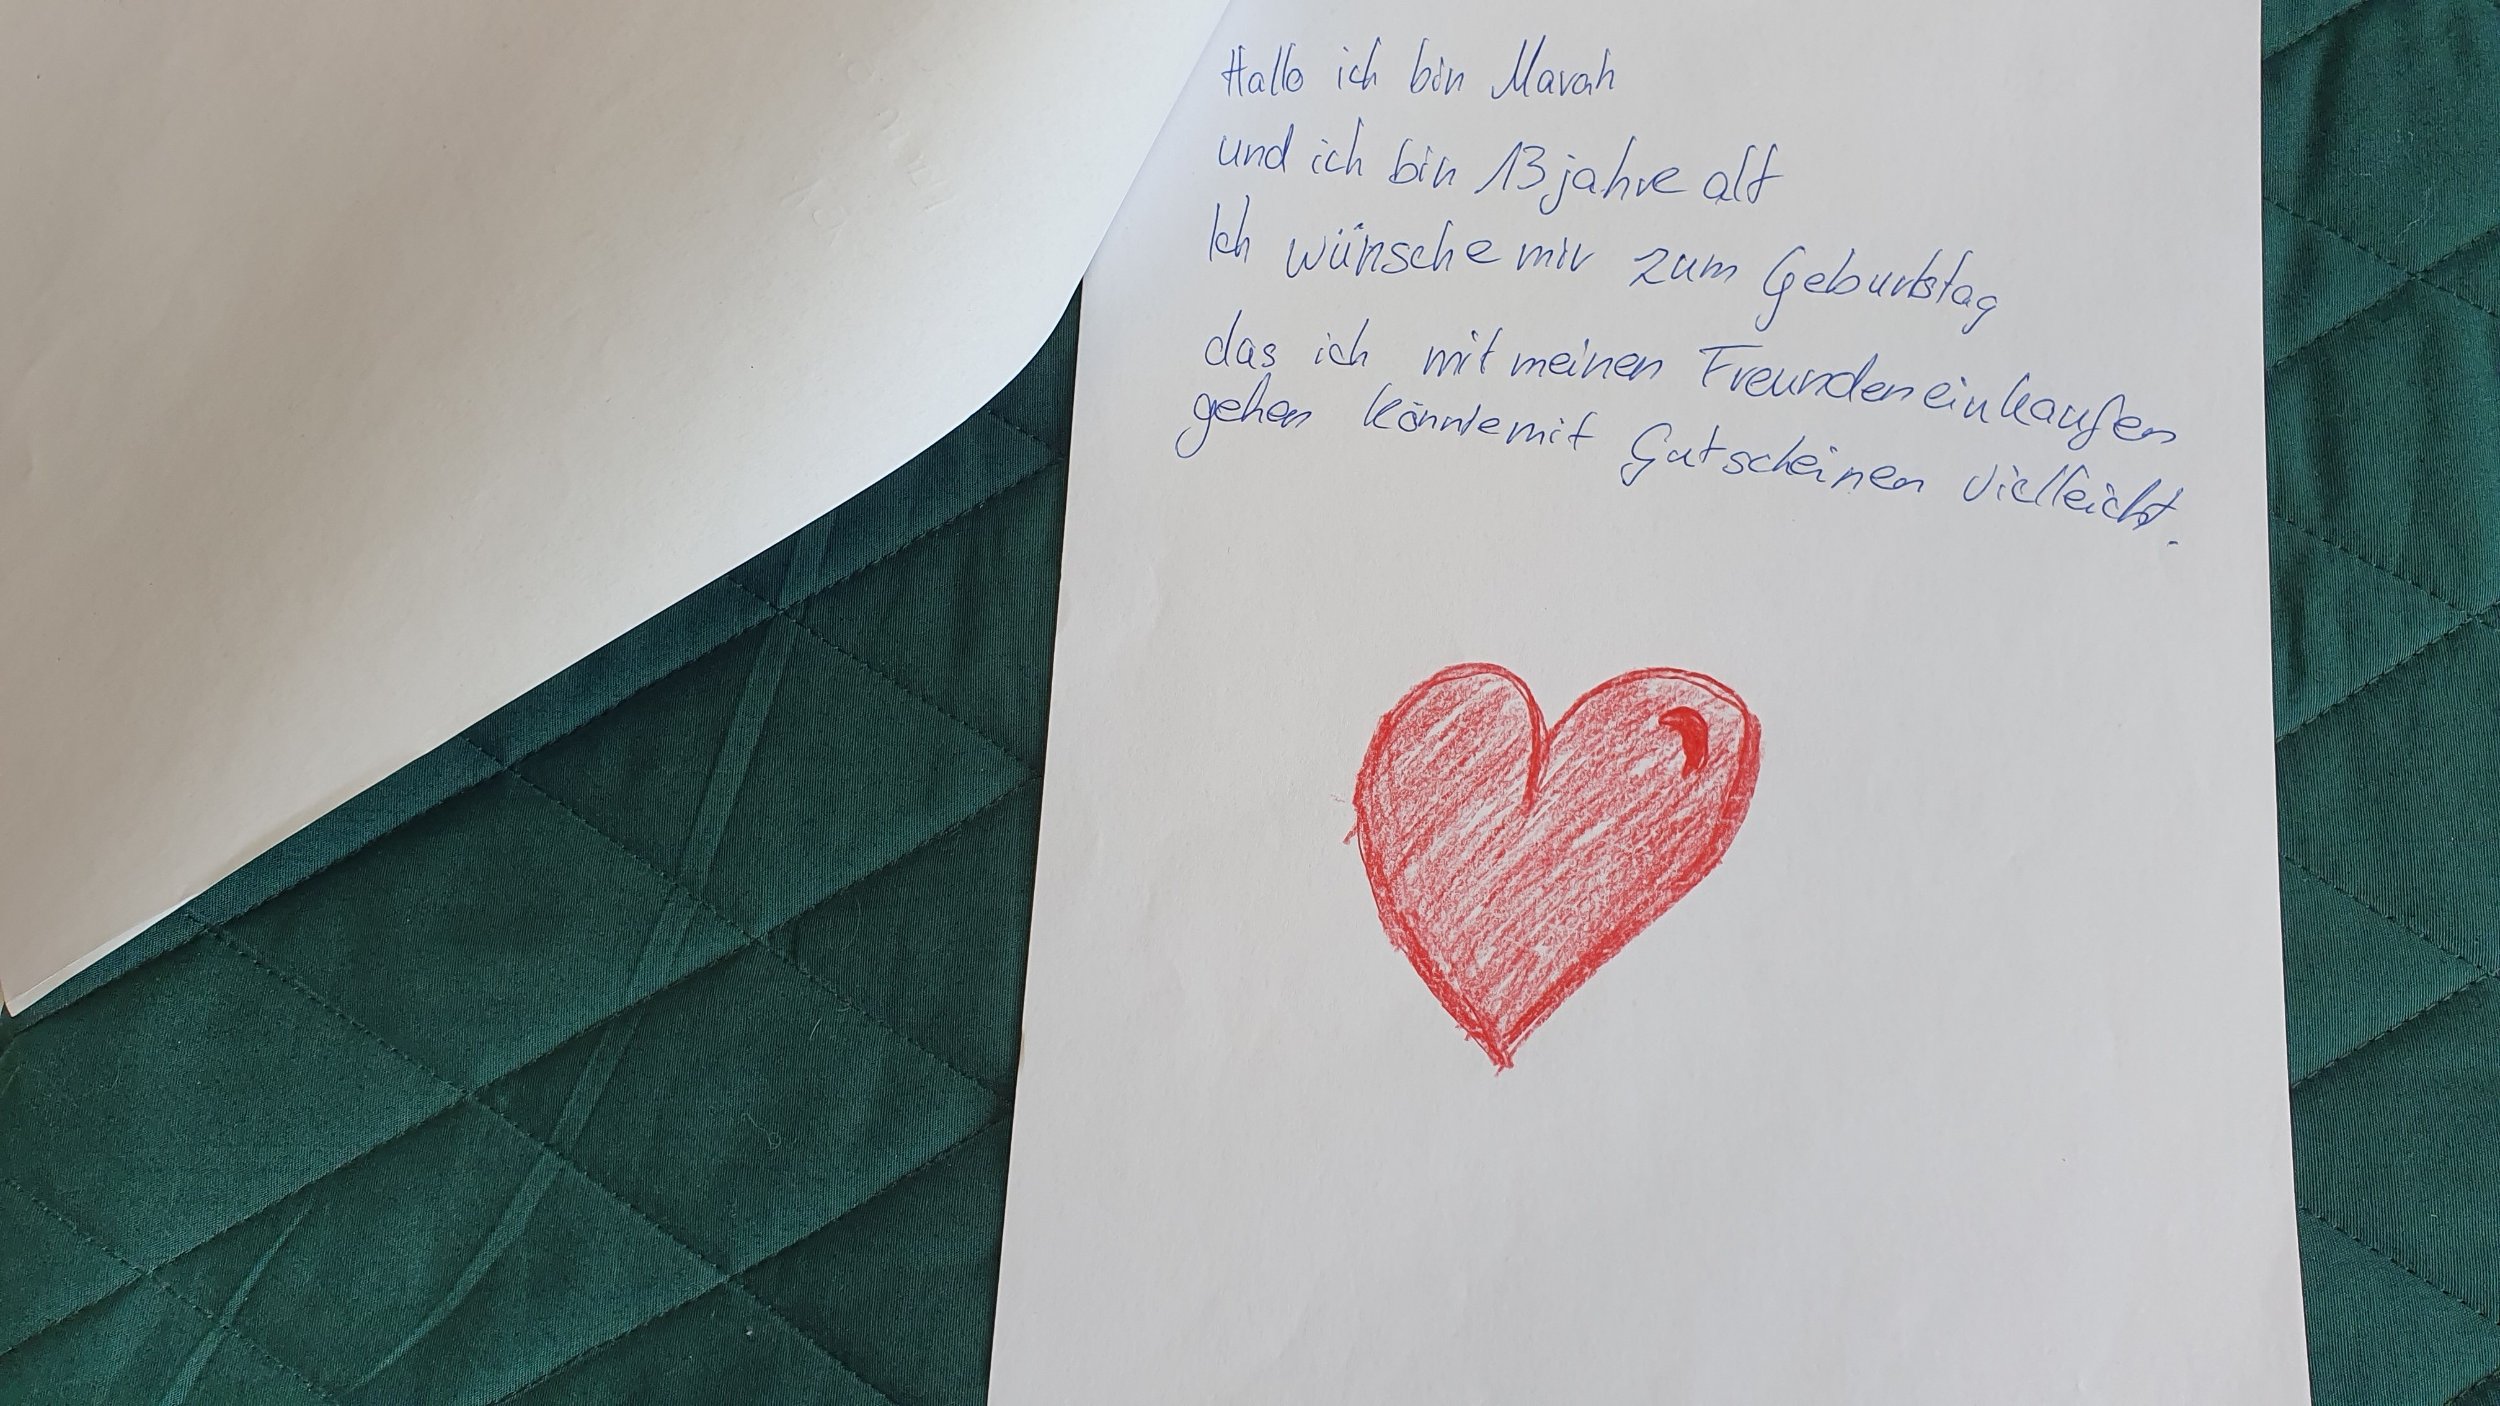 Hallo ich bin Marah
und ich bin 13 jahre alt
Ich wünsche mir zum Geburtstag
das ich mit meinen Freunden einkaufen
gehen könnte mit Gutscheinen vielleicht.